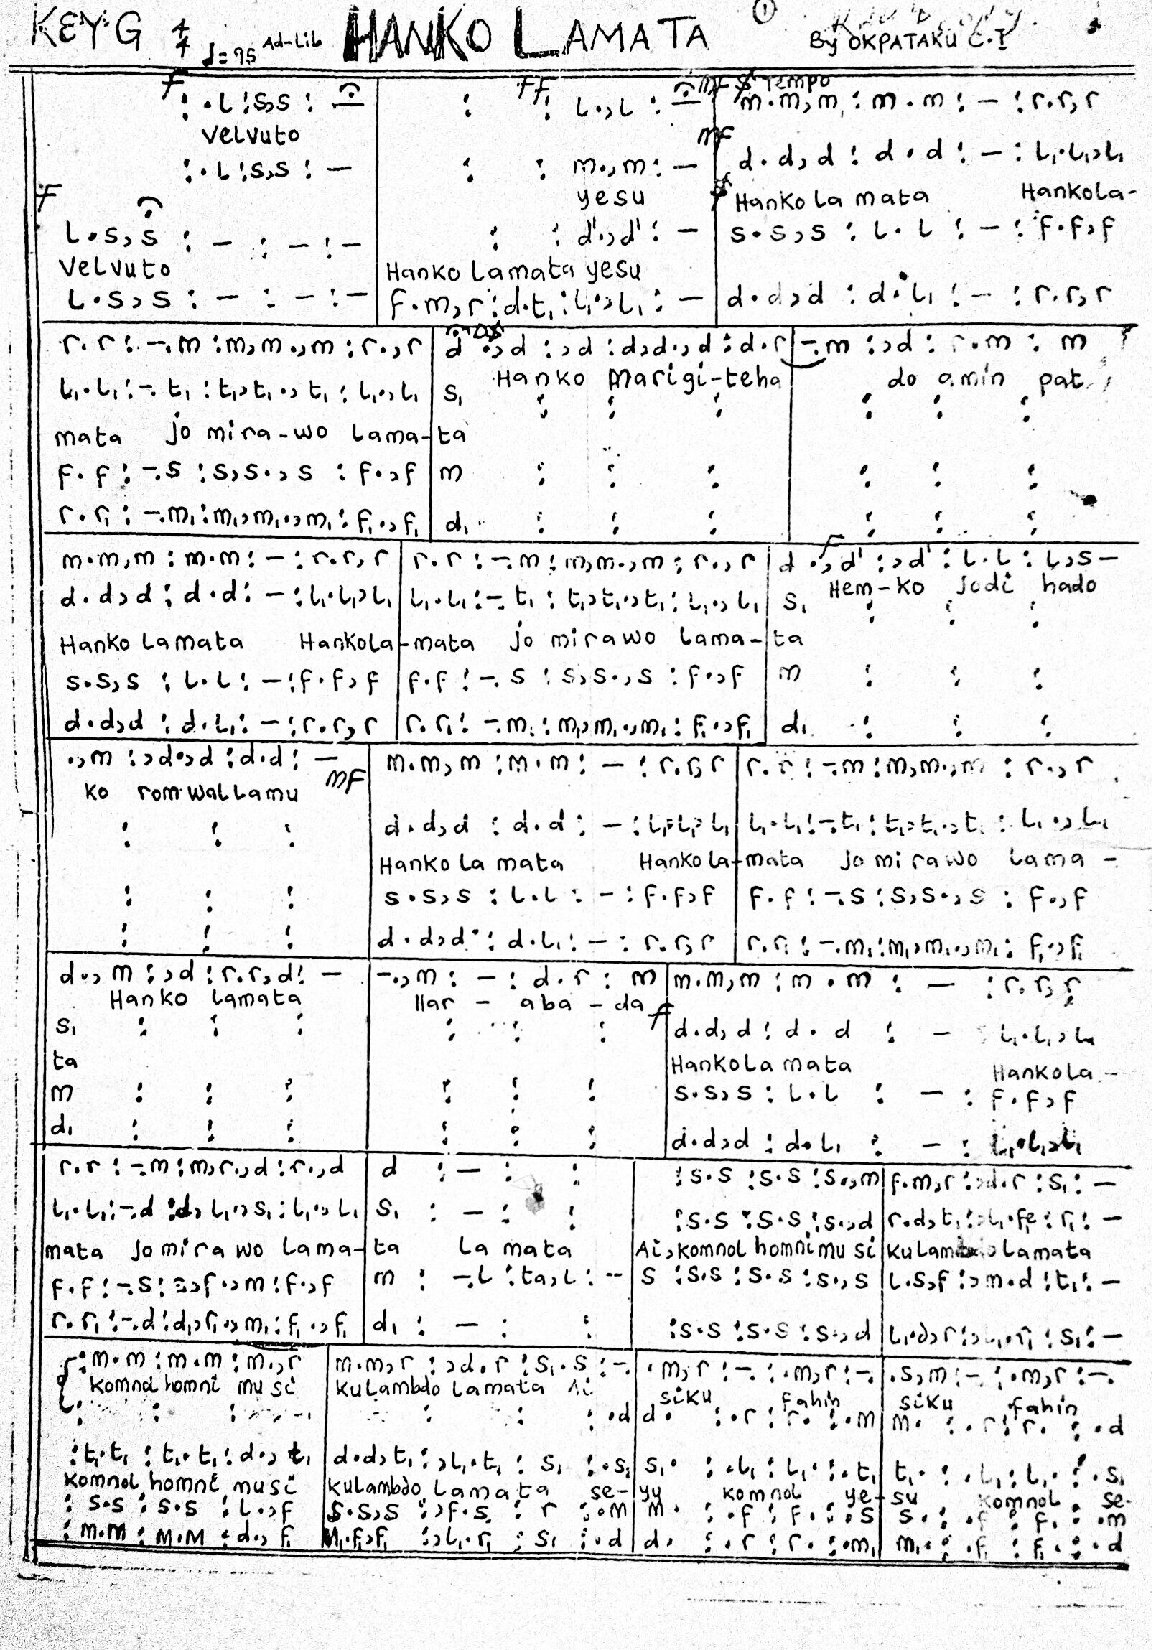 KEY G 4/4 ♩=75 Ad-Lib HANKO LAMATA ① By OKPATAKU C.I
F FF MF S Tempo
: . L : s,s : — | : : L . , L : — | m . m , m : m . m : — : r . r , r
Velvuto MF
: . L : s,s : — | : : m . , m : — | d . d , d : d . d : — : L₁ . L₁ , L₁
F yesu Hanko La mata Hankola-
L . s , s : — : — : — | : : d' . , d' : — | s . s , s : L . L : — : f . f , f
Velvuto Hanko Lamata yesu
L . s , s : — : — : — | f . m , r : d . t₁ : L₁ . , L₁ : — | d . d , d : d . L₁ : — : r . r , r
r . r : — . m : m , m . , m : r . , r | d . , d : , d : d , d . , d : d . r | — . m : , d : r . m : m
Hanko Marigi-teha do amin pat
L₁ . L₁ : — . t₁ : t₁ , t₁ . , t₁ : L₁ . , L₁ | s₁ : : : | : : :
mata jo mira-wo Lama-ta
f . f : — . s : s , s . , s : f . , f | m : : : | : : :
r . r₁ : — . m₁ : m₁ , m₁ . , m₁ : f₁ . , f₁ | d₁ : : : | : : :
F
m . m , m : m . m : — : r . r , r | r . r : — . m : m , m . , m : r . , r | d . , d' : , d' : L . L : L , s —
Hem-ko Jodi hado
d . d , d : d . d : — : L₁ . L₁ , L₁ | L₁ . L₁ : — . t₁ : t₁ , t₁ . , t₁ : L₁ . , L₁ | s₁ : : :
Hanko Lamata Hankola-mata Jo mirawo Lama-ta
s . s , s : L . L : — : f . f , f | f . f : — . s : s , s . , s : f . , f | m : : :
d . d , d : d . L₁ : — : r . r , r | r . r₁ : — . m₁ : m₁ , m₁ . , m₁ : f₁ . , f₁ | d₁ : : :
. , m : , d . , d : d . d : — | m . m , m : m . m : — : r . r , r | r . r : — . m : m , m . , m : r . , r
ko rom wal Lamu MF
: : : | d . d , d : d . d : — : L₁ . L₁ , L₁ | L₁ . L₁ : — . t₁ : t₁ , t₁ . , t₁ : L₁ . , L₁
Hanko La mata Hanko la-mata Jo mi ra wo Lama -
: : : | s . s , s : L . L : — : f . f , f | f . f : — . s : s , s . , s : f . , f
: : : | d . d , d : d . L₁ : — : r . r , r | r . r₁ : — . m₁ : m₁ , m₁ . , m₁ : f₁ . , f₁
d . , m : , d : r . r , d : — | — . , m : — : d . r : m | m . m , m : m . m : — : r . r , r
Hanko Lamata llar - aba - da F
s₁ : : : | : : : | d . d , d : d . d : — L₁ . L₁ , L₁
ta HankoLa mata Hankola -
m : : : | : : : | s . s , s : L . L : — : f . f , f
d₁ : : : | : : : | d . d , d : d . L₁ : — : L₁ . L₁ , L₁
r . r : — . m : m , r . , d : r . , d | d : — : : | : s . s : s . s : s . , m | f . m , r : , d . r : s₁ : —
L₁ . L₁ : — . d : d , L₁ . , s₁ : L₁ . , L₁ | s₁ : — : : | : s . s : s . s : s . , d | r . d , t₁ : , L₁ . fe : r₁ : —
mata Jo mira wo Lama-ta La mata Ai , komnol homni mu si kulambdo Lamata
f . f : — . s : s , f . , m : f . , f | m : — . L : ta , L : — | s : s . s : s . s : s . , s | L . s , f : , m . d : t₁ : —
r . r₁ : — . d : d , r₁ . , m₁ : f₁ . , f₁ | d₁ : — : : | : s . s : s . s : s . , d | L₁ . d , r : , L₁ . r₁ : s₁ : —
: m . m : m . m : m . , r | m . m , r : , d . r : s₁ . s : — . | . m , r : — . : . m , r : — . | . s , m : — : . m , r : — .
komnol homni mu si kulambdo Lamata Ai siku fahin siku fahin
: : : | : : . d | d . : . r : r . : . m | m . : . r : r . : . d
: t₁ . t₁ : t₁ . t₁ : d . , t₁ | d . d , t₁ : , L₁ . t₁ : s₁ : . s₁ | s₁ . : . L₁ : L₁ . : . t₁ | t₁ . : . L₁ : L₁ . : . s₁
komnol homni mu si kulambdo Lamata se-yu komnol ye-su komnol se-
: s . s : s . s : L . , f | s . s , s : , f . s : r : . m | m . : . f : f . : . s | s . : . f : f . : . m
: m . m : m . m : d . , f₁ | m₁ . f₁ , f₁ : , L₁ . r₁ : s₁ : . d | d . : . r : r . : . m₁ | m₁ . : . f₁ : f₁ . : . d